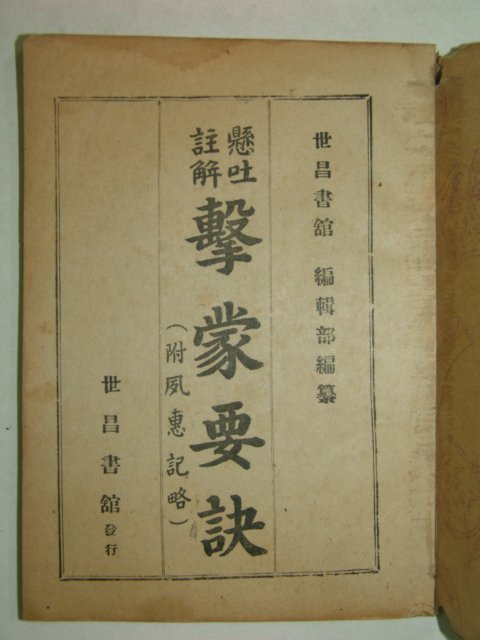 世昌書舘 編輯部編纂
懸吐
註解
擊蒙要訣
(附夙惠記略)
世昌書舘 發行